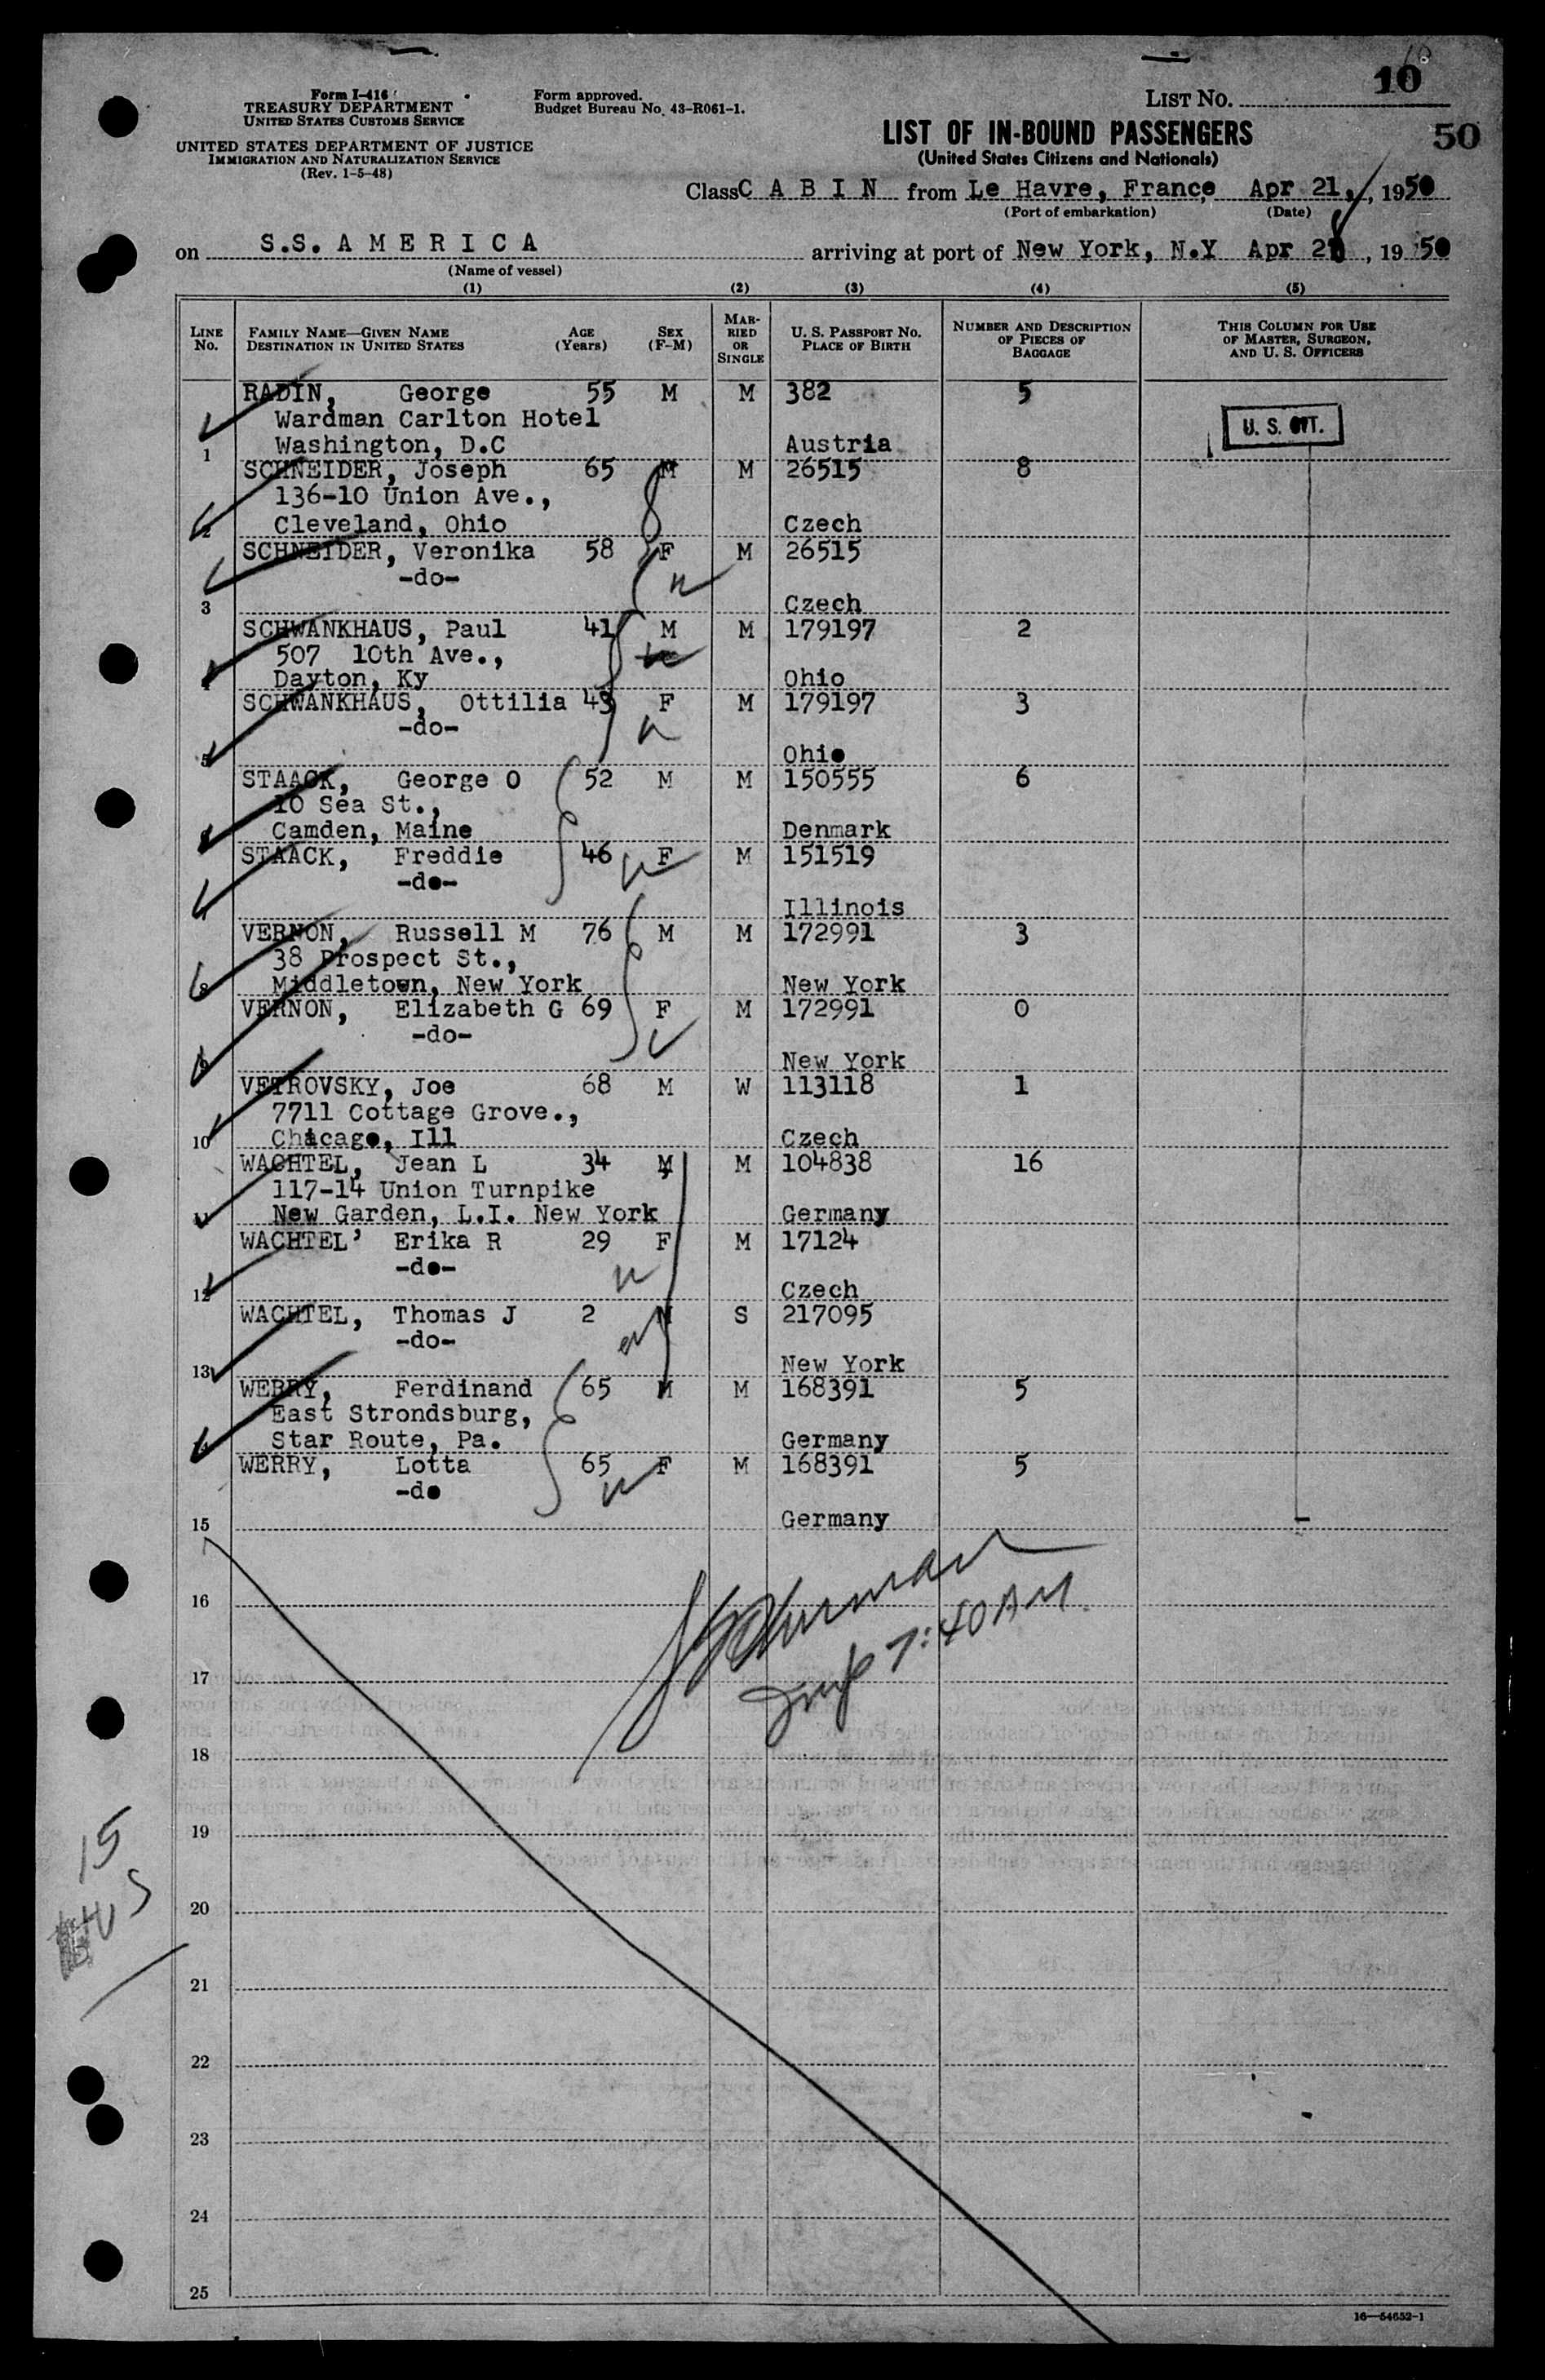 10
LIST NO. 10
50
Form I-416
TREASURY DEPARTMENT
UNITED STATES CUSTOMS SERVICE
UNITED STATES DEPARTMENT OF JUSTICE
IMMIGRATION AND NATURALIZATION SERVICE
(Rev. 1-5-48)
Form approved.
Budget Bureau No. 43-R061-1.
LIST OF IN-BOUND PASSENGERS
(United States Citizens and Nationals)
Class C A B I N from Le Havre, France Apr 21, , 1950
(Port of embarkation) (Date)
on S.S. A M E R I C A arriving at port of New York, N.Y Apr 28 , 19 50
(Name of vessel)
(1) (2) (3) (4) (5)
LINE No. FAMILY NAME—GIVEN NAME DESTINATION IN UNITED STATES AGE (Years) SEX (F-M) MARRIED OR SINGLE U. S. PASSPORT NO. PLACE OF BIRTH NUMBER AND DESCRIPTION OF PIECES OF BAGGAGE THIS COLUMN FOR USE OF MASTER, SURGEON, AND U. S. OFFICERS
RADIN, George 55 M M 382 5
Wardman Carlton Hotel U. S. CIT.
1 Washington, D.C Austria
SCHNEIDER, Joseph 65 M M 26515 8
136-10 Union Ave.,
2 Cleveland, Ohio Czech
SCHNEIDER, Veronika 58 F M 26515
-do-
3 Czech
SCHWANKHAUS, Paul 41 M M 179197 2
507 10th Ave.,
4 Dayton, Ky Ohio
SCHWANKHAUS, Ottilia 43 F M 179197 3
-do-
5 Ohio
STAACK, George O 52 M M 150555 6
10 Sea St.,
Camden, Maine Denmark
STAACK, Freddie 46 F M 151519
-do-
Illinois
VERNON, Russell M 76 M M 172991 3
38 Prospect St.,
8 Middletown, New York New York
VERNON, Elizabeth G 69 F M 172991 0
-do-
9 New York
VETROVSKY, Joe 68 M W 113118 1
7711 Cottage Grove.,
10 Chicago, Ill Czech
WACHTEL, Jean L 34 M M 104838 16
117-14 Union Turnpike
11 New Garden, L.I. New York Germany
WACHTEL' Erika R 29 F M 17124
-do-
12 Czech
WACHTEL, Thomas J 2 M S 217095
-do-
13 New York
WERRY, Ferdinand 65 M M 168391 5
East Strondsburg,
Star Route, Pa. Germany
WERRY, Lotta 65 F M 168391 5
-do
15 Germany
16
7:40 AM
17
18
19
15
US
20
21
22
23
24
25
16—54652-1